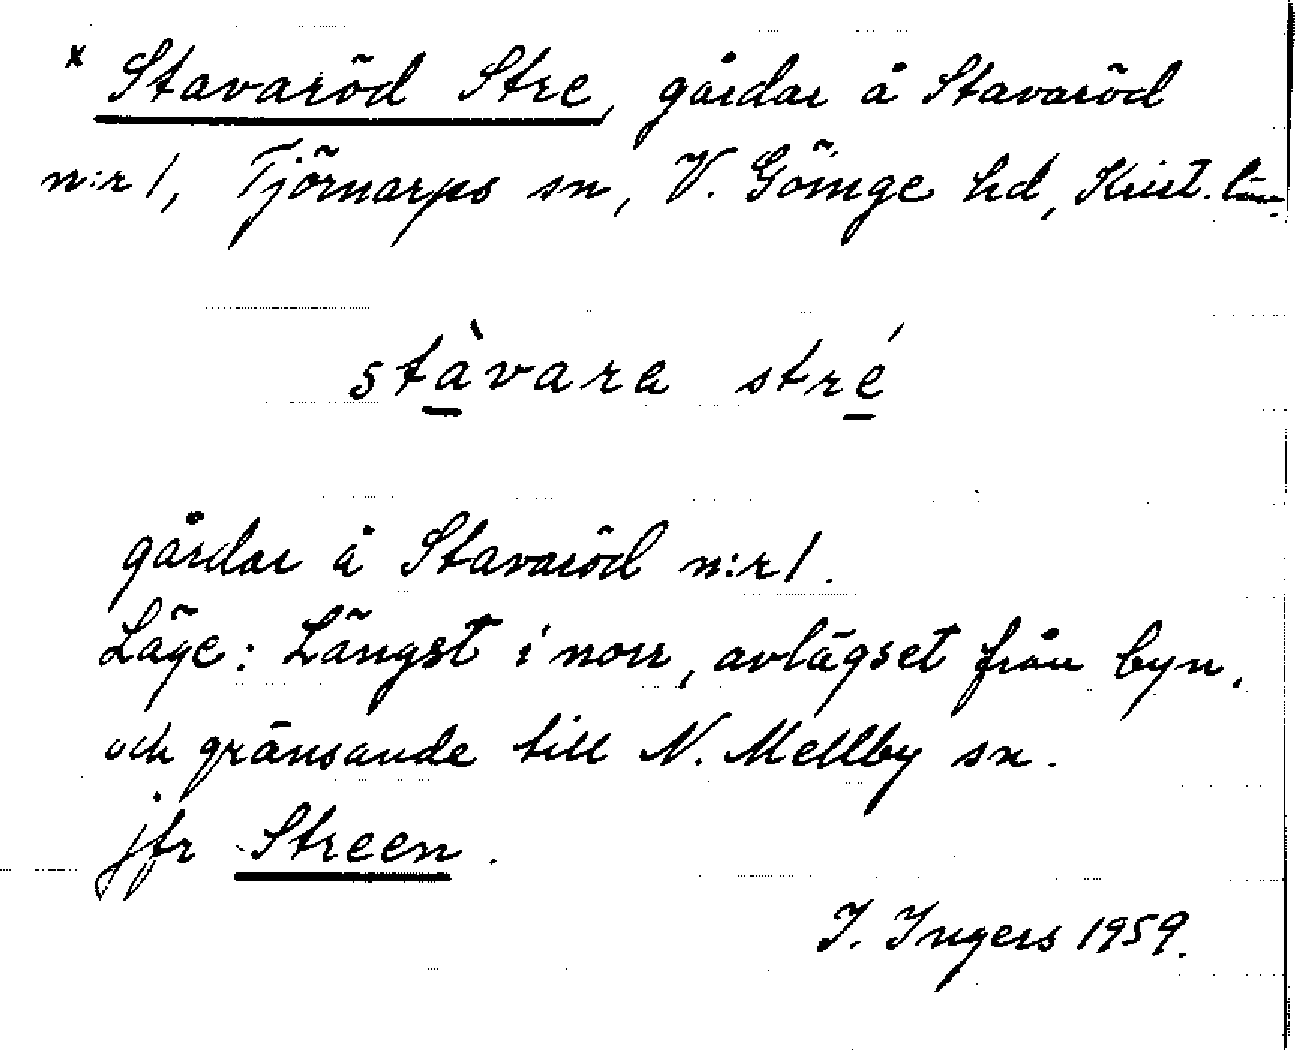 x Stavaröd Stre, gårdar å Stavaröd
n:r 1, Tjörnarps sn, V. Göinge hd, Krist. län.
stàvara stré
gårdar å Stavaröd n:r 1.
Läge: Längst i norr, avlägset från byn,
och gränsande till N. Mellby sn.
jfr Streen.
I. Ingers 1959.